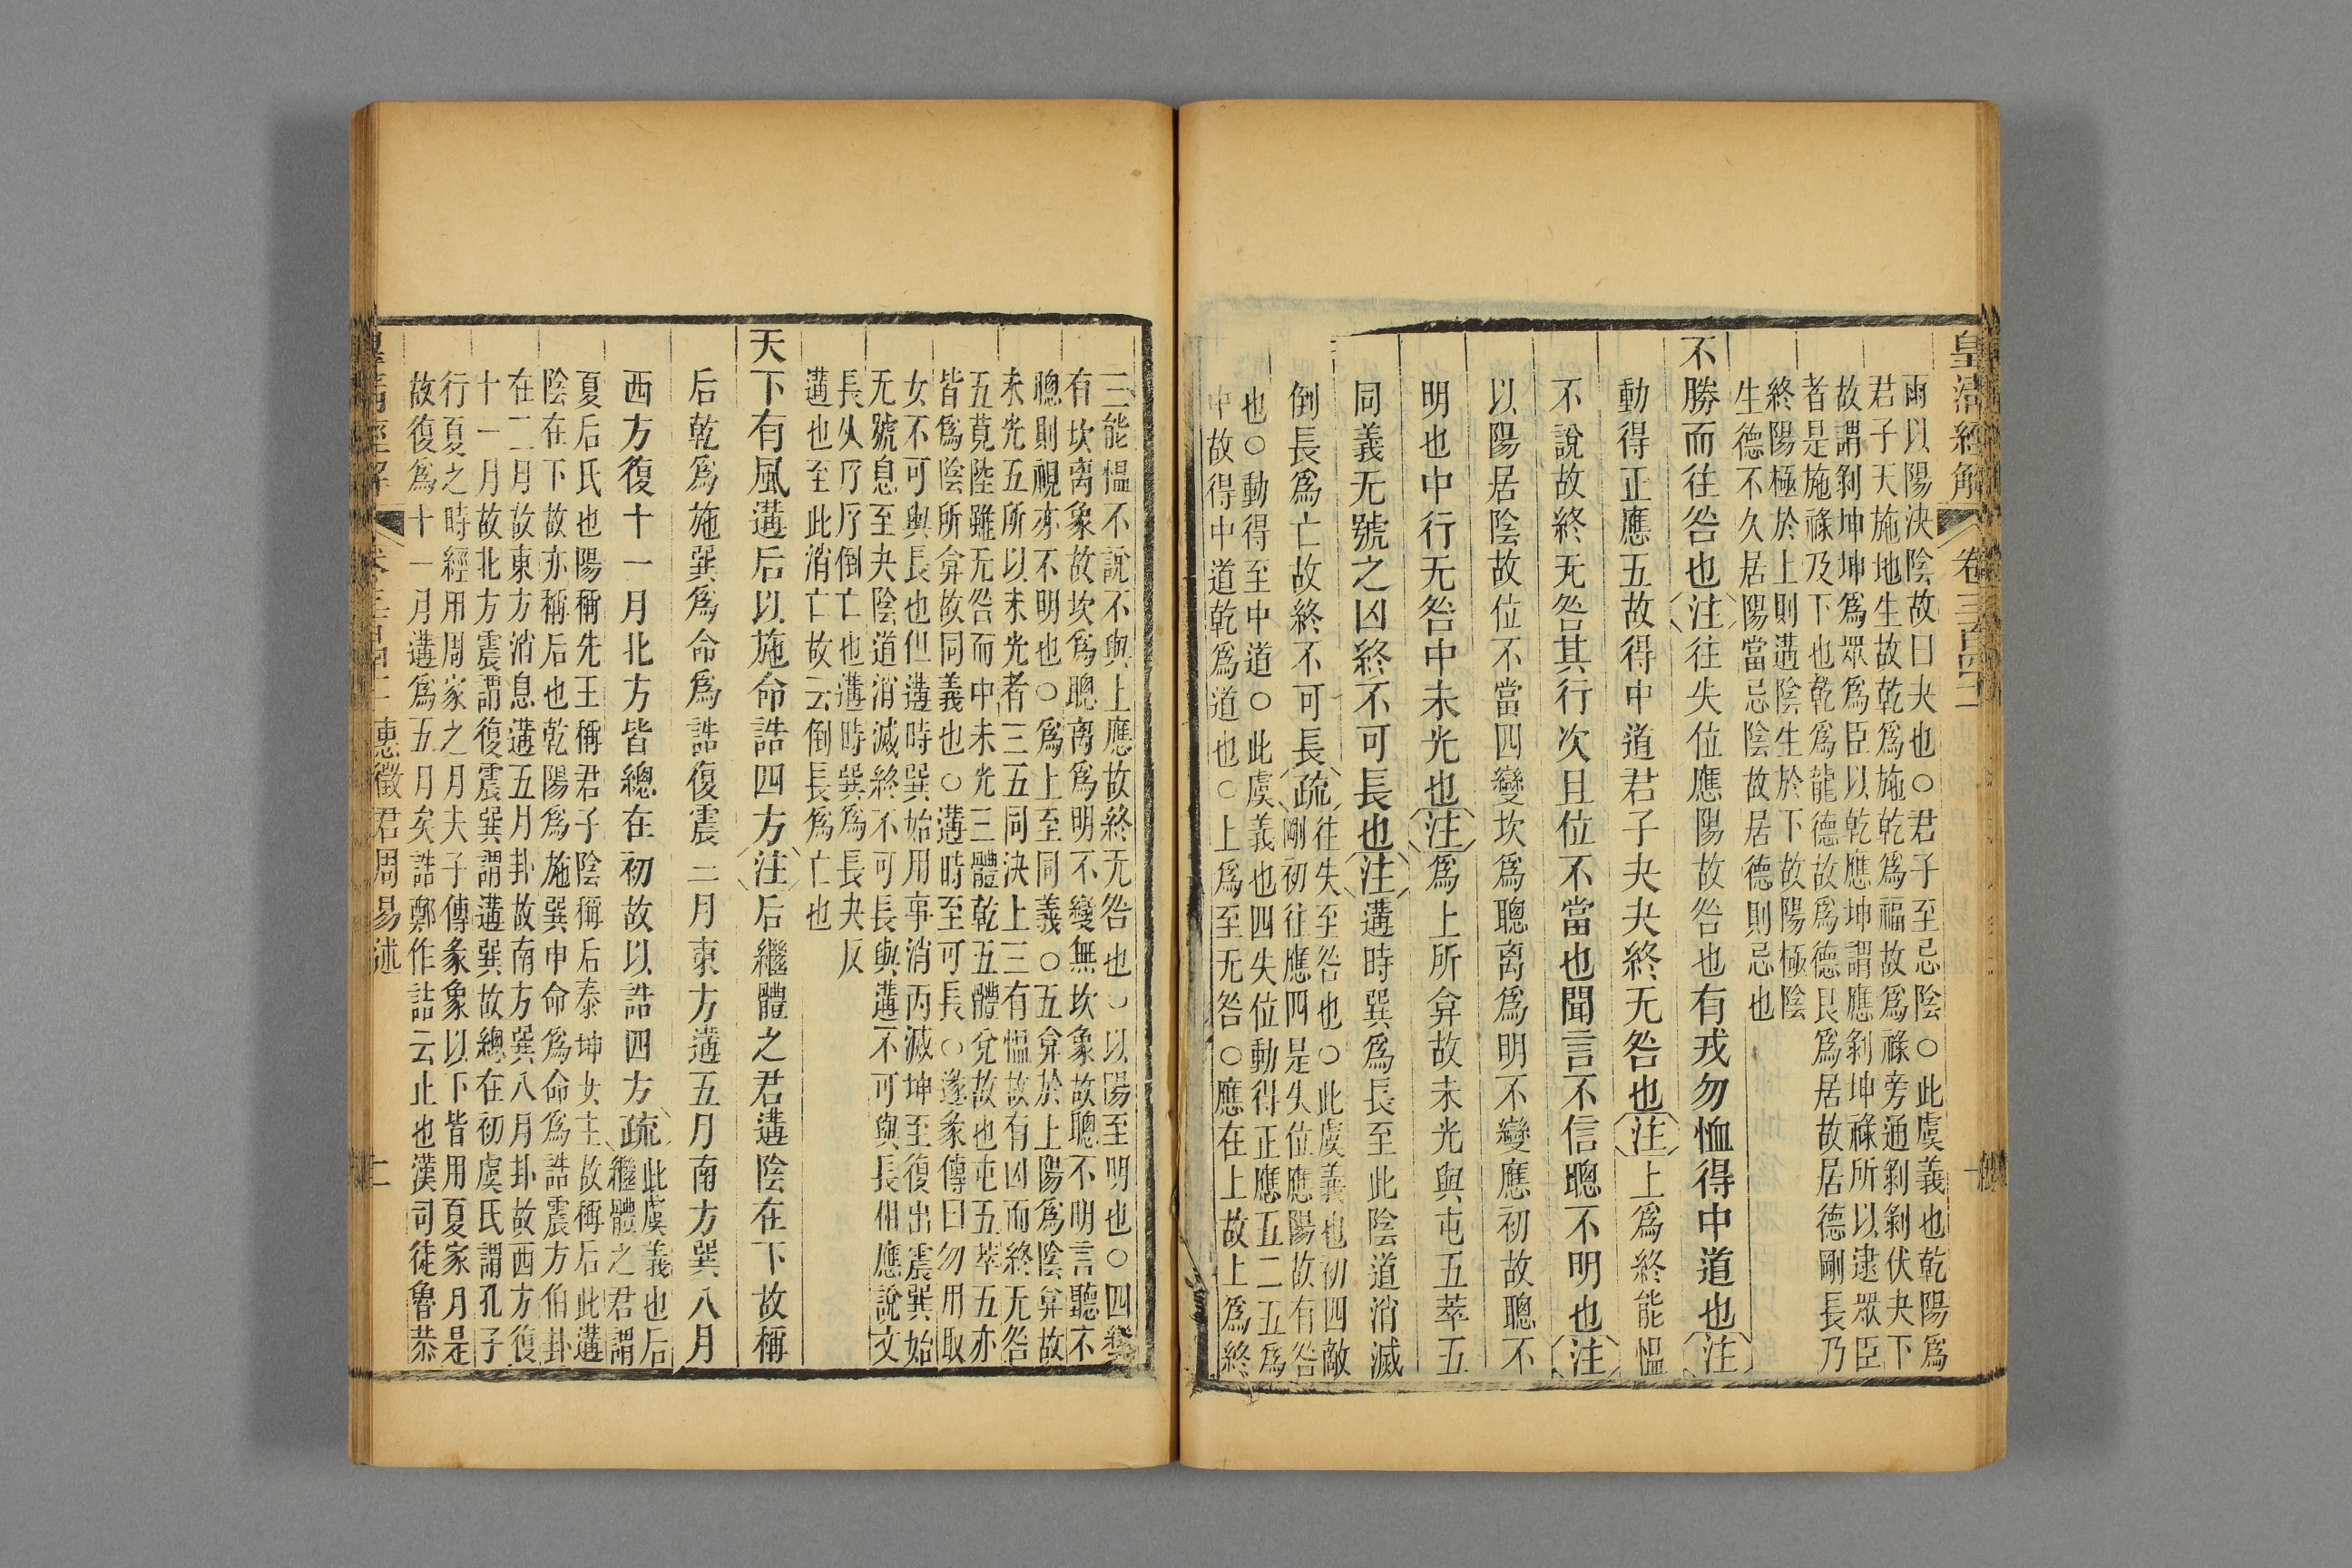 皇清經解 卷三百四十二
爾以陽決陰故曰夬也○君子至忌陰○此虞義也乾陽爲
君子天施地生故乾爲施乾爲福故爲祿旁通剝剝伏夬下
故謂剝坤坤爲眾爲臣以乾應坤謂應剝坤祿所以逮眾臣
者是施祿及下也乾爲龍德故爲德艮爲居故居德剛長乃
終陽極於上則遘陰生於下故陽極陰
生德不久居陽當忌陰故居德則忌也
不勝而往咎也注往失位應陽故咎也有戎勿恤得中道也注
動得正應五故得中道君子夬夬終无咎也注上爲終能慍
不說故終无咎其行次且位不當也聞言不信聰不明也注
以陽居陰故位不當四變坎爲聰离爲明不變應初故聰不
明也中行无咎中未光也注爲上所弇故未光與屯五萃五
同義无號之凶終不可長也注遘時巽爲長至此陰道消滅
倒長爲亡故終不可長疏往失至咎也○此虞義也初四敵
剛初往應四是失位應陽故有咎
也○動得至中道○此虞義也四失位動得正應五二五爲
中故得中道乾爲道也○上爲至无咎○應在上故上爲終
三能慍不說不與上應故終无咎也○以陽至明也○四變
有坎离象故坎爲聰离爲明不變無坎象故聰不明言聽不
聰則視亦不明也○爲上至同義○五弇於上陽爲陰弇故
未光五所以未光者三五同決上三有慍故有凶而終无咎
五莧陸雖无咎而中未光三體乾五體兌故也屯五萃五亦
皆爲陰所弇故同義也○遘時至可長○遂彖傳曰勿用取
女不可與長也但遘時巽始用事消丙滅坤至復出震巽始
无號息至夬陰道消滅終不可長與遘不可與長相應說文
長从𠤎𠤎倒亡也遘時巽爲長夬反
遘也至此消亡故云倒長爲亡也
天下有風遘后以施命誥四方注后繼體之君遘陰在下故稱
后乾爲施巽爲命爲誥復震二月東方遘五月南方巽八月
西方復十一月北方皆總在初故以誥四方疏此虞義也后
繼體之君謂
夏后氏也陽稱先王稱君子陰稱后泰坤女主故稱后此遘
陰在下故亦稱后也乾陽爲施巽申命爲命爲誥震方伯卦
在二月故東方消息遘五月卦故南方巽八月卦故西方復
十一月故北方震謂復震巽謂遘巽故總在初虞氏謂孔子
行夏之時經用周家之月夫子傳彖象以下皆用夏家月是
故復爲十一月遘爲五月矣誥鄭作詰云止也漢司徒魯恭
惠徵君周易述